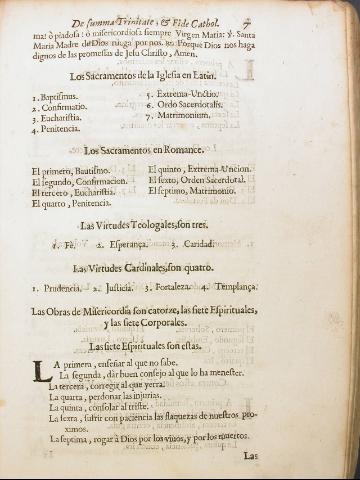 De summa Trinitate, & Fide Cathol. 7
ma! ò piadosa! ò misericordiosa siempre Virgen Maria! ℣. Santa
Maria Madre de Dios ruega por nos. ℟. Porque Dios nos haga
dignos de las promessas de Jesu Christo, Amen.
Los Sacramentos de la Iglesia en Latin.
1. Baptismus.
2. Confirmatio.
3. Eucharistia.
4. Penitencia.
5. Extrema-Unctio.
6. Ordo Sacerdotalis.
7. Matrimonium.
Los Sacramentos en Romance.
El primero, Bautismo.
El segundo, Confirmacion.
El tercero, Eucharistia.
El quarto, Penitencia.
El quinto, Extrema-Uncion.
El sexto, Orden Sacerdotal.
El septimo, Matrimonio.
Las Virtudes Teologales, son tres.
1. Fè. 2. Esperança. 3. Caridad.
Las Virtudes Cardinales, son quatro.
1. Prudencia. 2. Justicia. 3. Fortaleza. 4. Templança.
Las Obras de Misericordia son catorze, las siete Espirituales,
y las siete Corporales.
Las siete Espirituales son estas.
LA primera, enseñar al que no sabe.
La segunda, dàr buen consejo al que lo ha menester.
La tercera, corregir al que yerra.
La quarta, perdonar las injurias.
La quinta, consolar al triste.
La sexta, sufrir con paciencia las flaquezas de nuestros pro-
ximos.
La septima, rogar à Dios por los vivos, y por los muertos.
Las